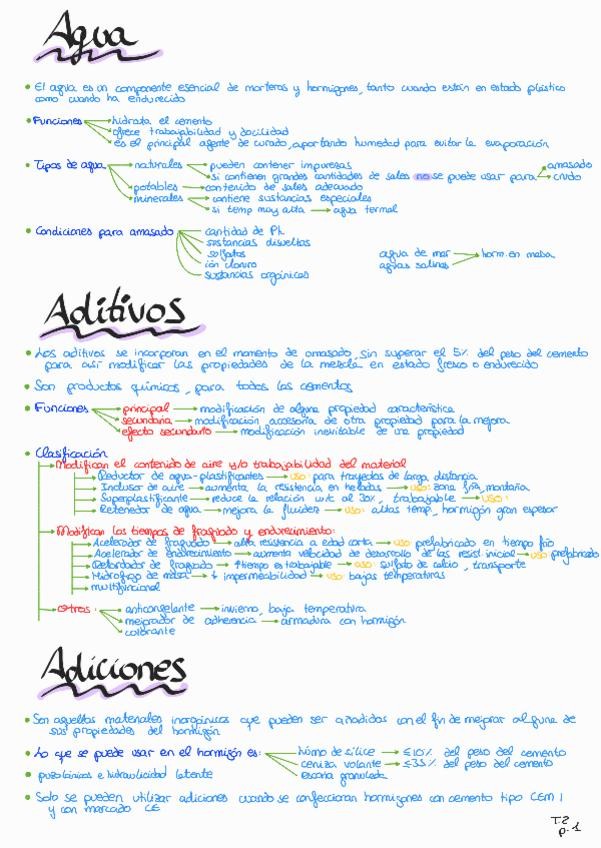 Agua
• El agua es un componente esencial de morteros y hormigones, tanto cuando están en estado plástico
como cuando ha endurecido
• Funciones → hidrata el cemento
→ ofrece trabajabilidad y docilidad
→ es el principal agente de curado, aportando humedad para evitar la evaporación
• Tipos de agua → naturales → pueden contener impurezas
→ si contienen grandes cantidades de sales no se puede usar para → amasado
→ crudo
→ potables → contenido de sales adecuado
→ minerales → contiene sustancias especiales
→ si temp muy alta → agua termal
• Condiciones para amasado cantidad de Ph
sustancias disueltas
sulfatos
ión cloruro
sustancias orgánicas
agua de mar → horm. en masa
aguas salinas
Aditivos
• Los aditivos se incorporan en el momento de amasado, sin superar el 5% del peso del cemento
para así modificar las propiedades de la mezcla en estado fresco o endurecido
• Son productos químicos, para todos los cementos
• Funciones → principal → modificación de alguna propiedad característica
→ secundaria → modificación accesoria de otra propiedad para la mejora
→ efecto secundario → modificación inevitable de una propiedad
• Clasificación
→ Modifican el contenido de aire y/o trabajabilidad del material
→ Reductor de agua-plastificantes → uso para trayectos de larga distancia
→ Inclusor de aire → aumenta la resistencia en heladas → uso: zona fría, montaña
→ Superplastificante → reduce la relación w/c al 30%, trabajable → uso:
→ Retenedor de agua → mejora la fluidez → uso: altas temp, hormigón gran espesor
→ Modifican los tiempos de fraguado y endurecimiento:
→ Acelerador de fraguado → alta resistencia a edad corta → uso prefabricado en tiempo frío
→ Acelerador de endurecimiento → aumenta velocidad de desarrollo de las resist. inicial → uso prefabricado
→ Retardador de fraguado → ↑tiempo es trabajable → uso: sulfato de calcio, transporte
→ Hidrófugo de masa → + impermeabilidad → uso bajas temperaturas
→ multifuncional
→ Otros: → anticongelante → invierno, baja temperatura
→ mejorador de adherencia → armadura con hormigón
→ colorante
Adiciones
• Son aquellos materiales inorgánicos que pueden ser añadidos con el fin de mejorar alguna de
sus propiedades del hormigón
• Lo que se puede usar en el hormigón es: húmo de sílice → ≤10% del peso del cemento
ceniza volante → ≤35% del peso del cemento
escoria granulada
• puzolánicos e hidraulicidad latente
• Solo se pueden utilizar adiciones cuando se confeccionan hormigones con cemento tipo CEM I
y con marcado CE
T.2
p.1